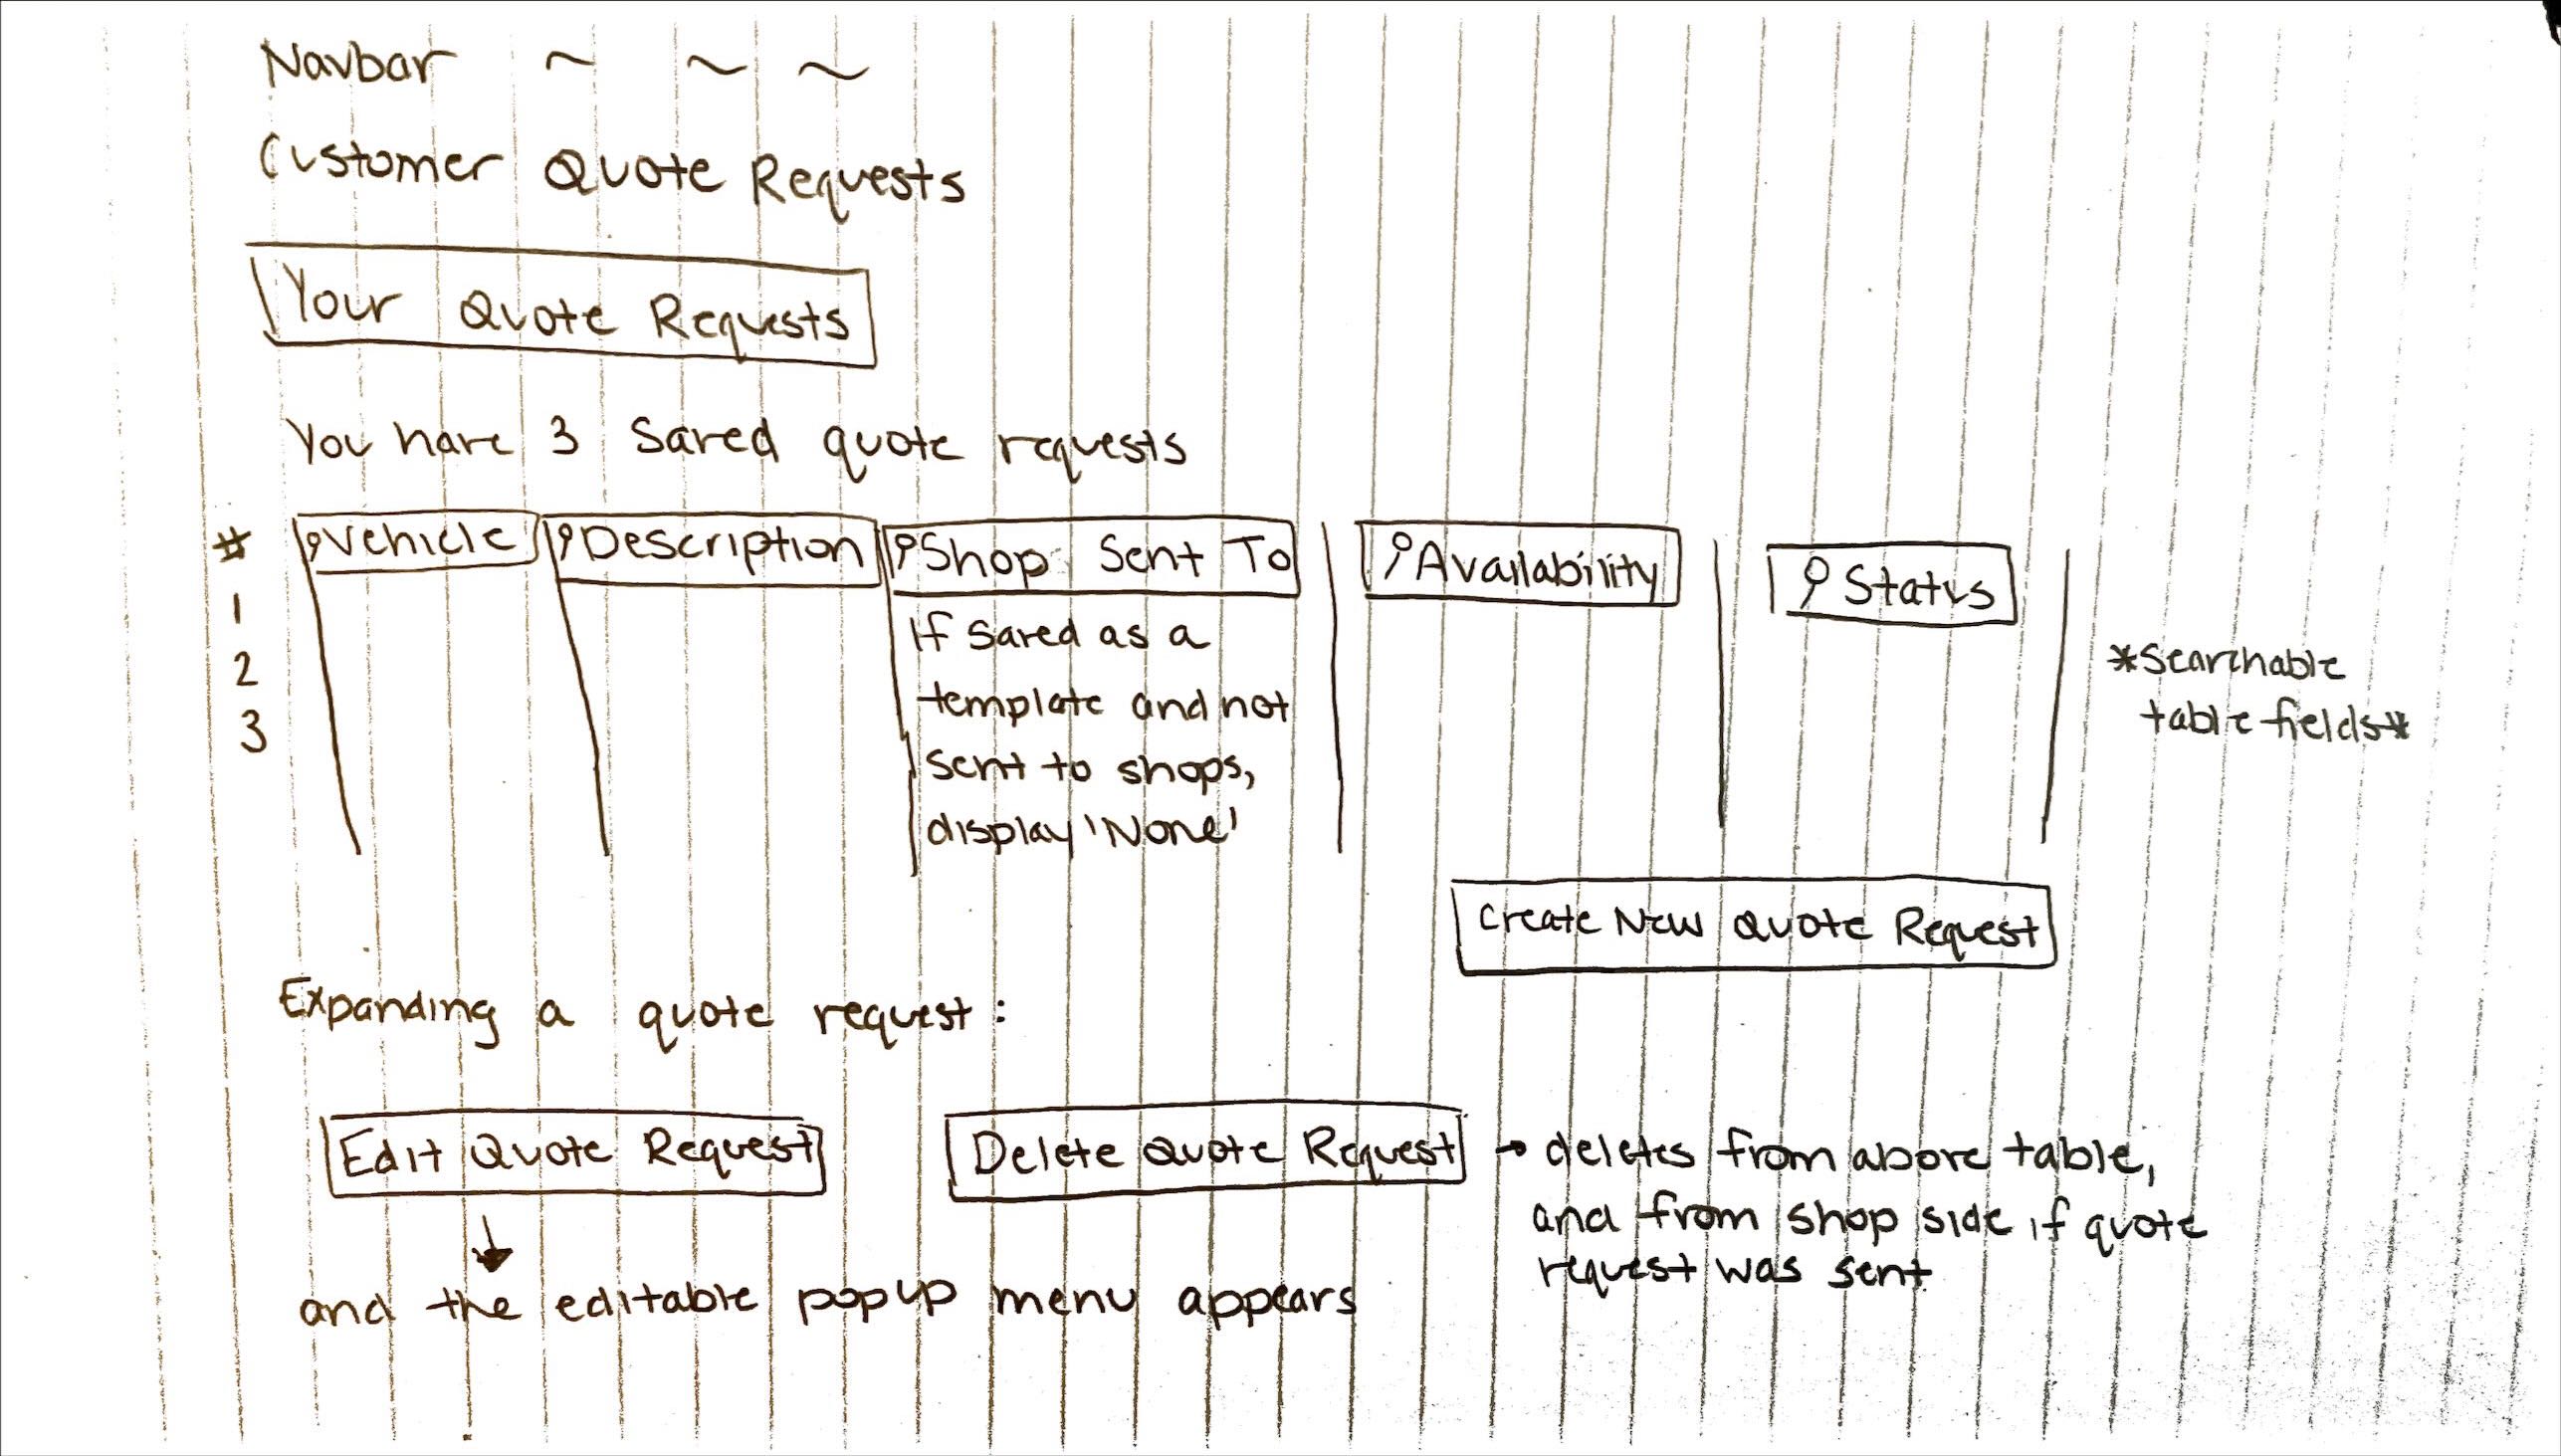 Navbar ~ ~ ~
Customer Quote Requests
Your Quote Requests
You have 3 saved quote requests
# Vehicle Description Shop Sent To Availability Status
1
2
3
If saved as a
template and not
sent to shops,
display 'None'
*searchable
table fields*
Create New Quote Request
Expanding a quote request:
Edit Quote Request Delete Quote Request → deletes from above table,
and from shop side if quote
request was sent
↓
and the editable popup menu appears